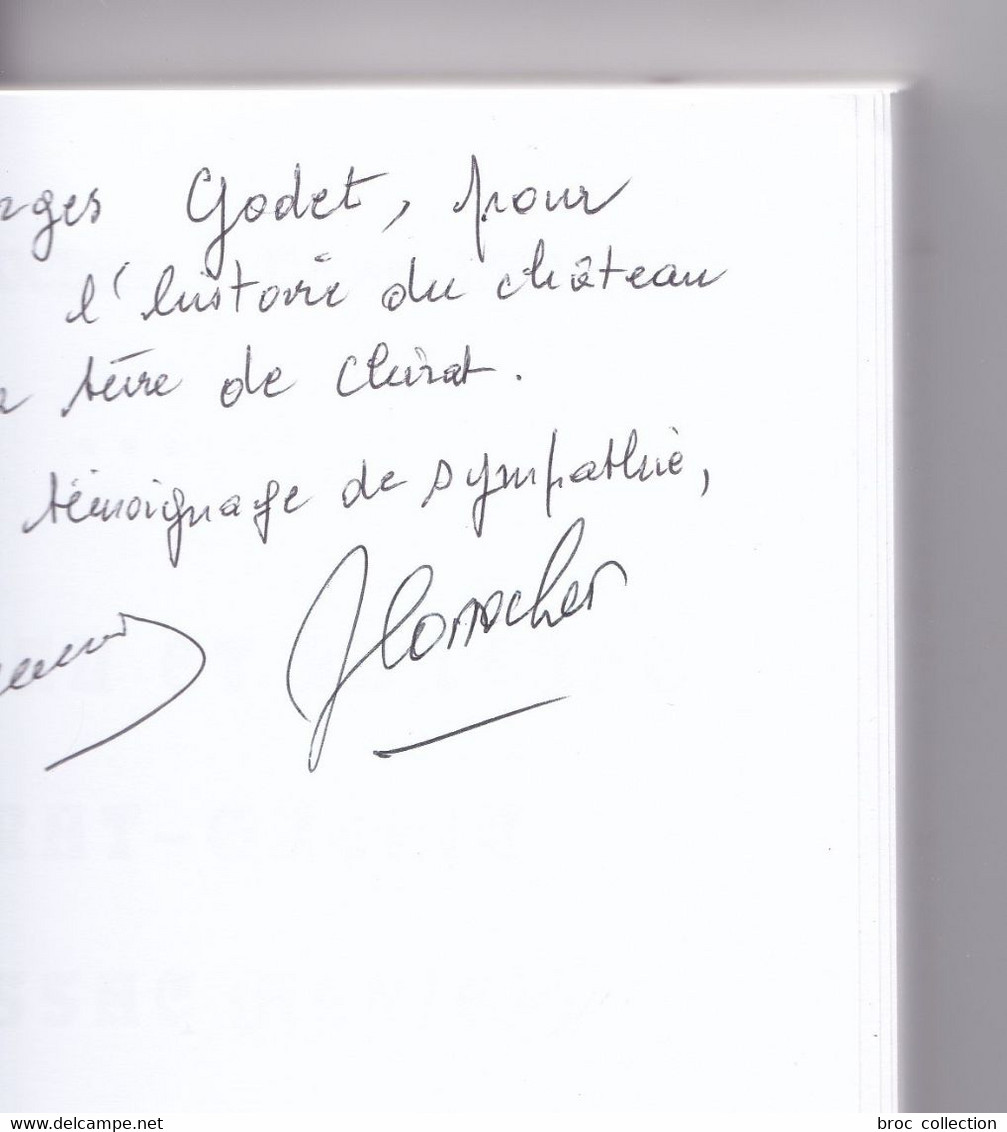 rges Godet, pour
l'histoire du château
terre de Chirat.
témoignage de sympathie,
delcampe.net
broc collection